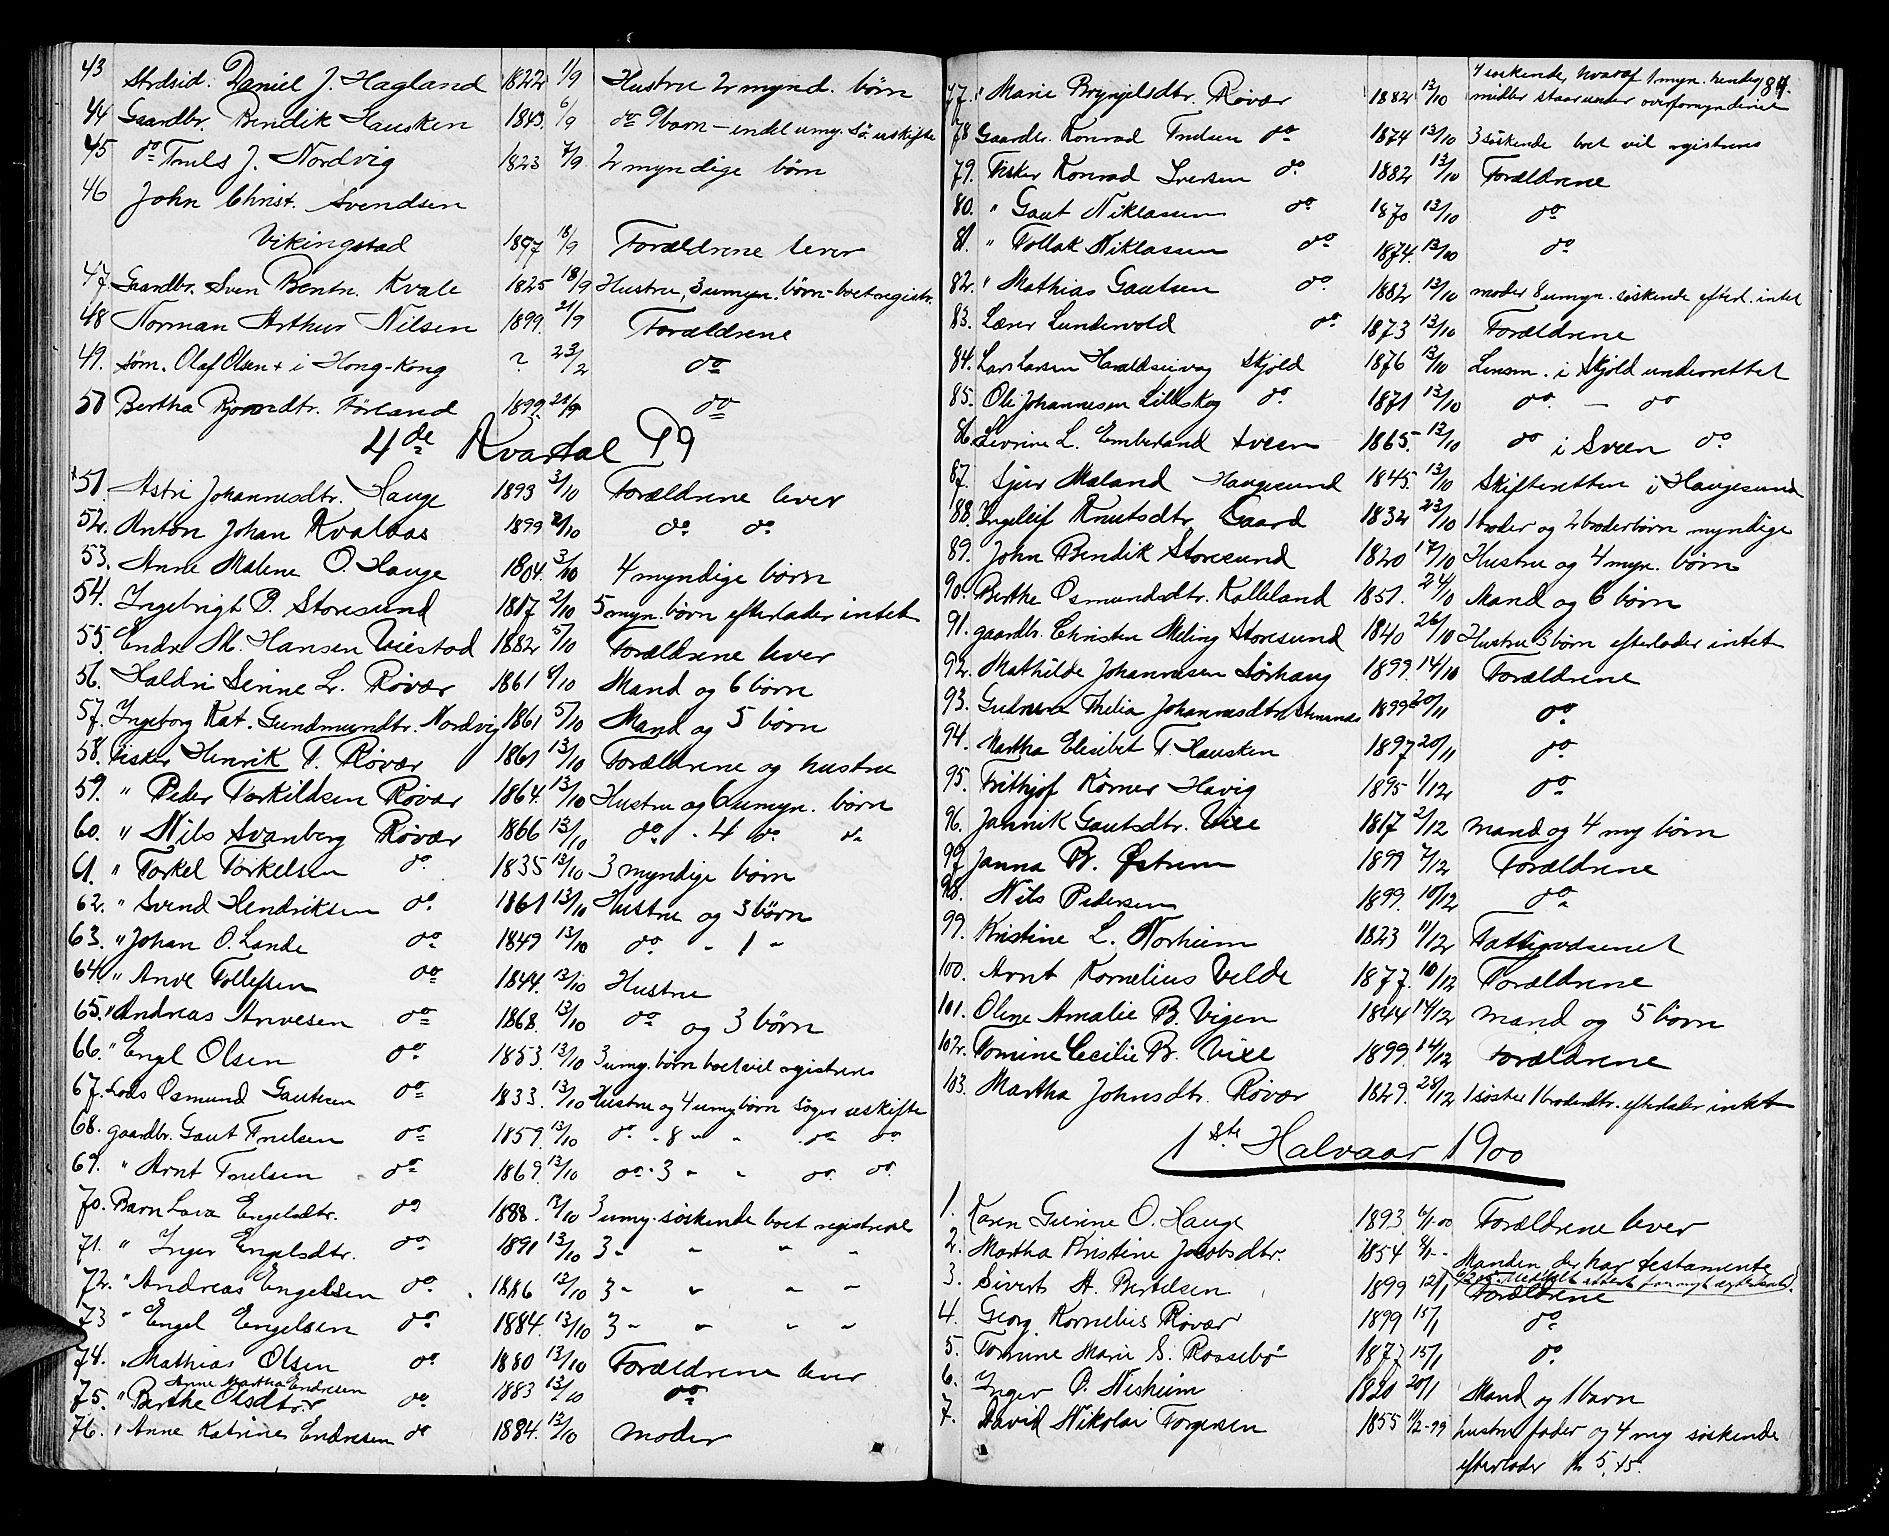 43 Strdsid. Daniel J. Hagland 1822 1/9 Hustru 2 mynd. børn
44 Gaardbr. Bendik Hausken 1843 6/9 do 9 barn – endel umy. Sø. uskifte
45 do Truls J. Nordvig 1823 7/9 2 myndige børn
46 John Christ. Svendsen
Vikingstad 1897 18/9 Forældrene lever
47 Gaardbr. Sven Bentn. Kvale 1825 18/9 Hustru, 3 umyn. børn – boet registr.
48 Norman Arthur Nilsen 1899. 21/9 Forældrene
49. Søm. Olaf Olsen + i Hong-Kong ? 23/2 do
50 Bertha Bjørndtr. Førland 1899. 20/9 do
4de Kvartal 99
51. Astri Johannesdtr. Hauge 1893 3/10 Forældrene lever
52. Anton Johan Kvalvas 1899 2/10 do do
53. Anne Malene O. Hauge 1804. 3/10 4 myndige børn
54. Ingebrigt P. Storesund 1817 2/10 5 myn. børn efterlader intet
55. Endre M. Hansen Viestad 1882 5/10 Forældrene lever
56. Haldri Serine L. Røvær 1861 6/10 Mand og 6 børn
57. Ingeborg Kat. Gundmundtr. Nordvig 1861 5/10 Mand og 5 børn
58. Fisker Henrik T. Røvær 1861 13/10 Forældrene og hustru
59. " Peder Torkildsen Røvær 1864. 13/10 Hustru og 6 umyn. børn
60. " Nils Svanberg Røvær 1866 13/10 do. - 4 do do
61. " Torkel Torkelsen do. 1835 13/10 3 myndige børn
62. " Svend Hendriksen do. 1861 13/10 Hustru og 3 børn
63. " Johan O. Lande do 1849 13/10 do. " 1 "
64. " Anve Tollefsen do 1844. 13/10 Hustru
65. " Andreas Anvesen do 1868. 13/10 do og 3 børn
66. " Engel Olsen do 1853. 13/10 3 umy. børn boet vil registreres
67. Lods Osmund Gautsen do 1833. 13/10 Hustru og 4 umy børn søger uskifte
68. gaardbr. Gaut Truelsen do 1859. 13/10 do - 8 " " do do
69. " Arnt Truelsen do 1869. 13/10 do - 3 " " do do
70. Barn Lava Engelsdtr. do 1888. 13/10 3 umy. søskende boet registreres
71. " Inger Engelsdtr. do 1891 13/10 3 " " " "
72. " Andreas Engelsen do 1886 13/10 3 " " " "
73 " Engel Engelsen do 1884. 13/10 3 " " " "
74. " Mathias Olsen do 1880 13/10 Forældrene lever
Anne Martha Endresen
75. " Berthe Olsdtr. do 1883 13/10 do
76. " Anne Katrine Endresen do 1884. 13/10 Moder
4 søskende, hvoraf 1 myn. hendes 84.
77. " Marie Bryngelsdtr. Røvær 1882 13/10 midler staar under overformynderiet
78 Gaardbr. Konrad Truelsen do 1874 13/10 3 søskende boet vil registreres
79. Fisker Konrad Iversen do 1882 13/10 Forældrene
80. " Gaut Niklassen do 1870 13/10 do
81. " Tollak Niklassen do 1874. 13/10 do
82. " Mathias Gautsen do. 1882 13/10 moder 8 umyn. søskende efterl. intet
83. Lærer Lundervold do. 1873 13/10 Forældrene
84. Lars Larsen Haraldseivag Skjold 1876 13/10 Lensm. i Skjold underrettet
85. Ole Johannesen Lilleskog do. 1871 13/10 do. – do
86. Sevrine L. Emberland Sveen 1865. 13/10 do i Sveen do
87. Sjur Mæland Haugesund 1845. 13/10 Skifteretten i Haugesund
88. Ingeleif Knutsdtr. Gaard 1832 23/10 1 broder og 2 broderbørn myndige
89. John Bendik Storesund 1820 17/10 Hustru og 4 myn. børn
90. Berthe Osmundsdtr. Kalleland 1851. 24/10 Mand og 6 børn
91. gaardbr. Christen Meling Storesund 1840 26/10 Hustru 3 børn efterlader intet
92. Mathilde Johannesen Sørhaug 1899. 14/10 Forældrene
93. Gudrune Thelia Johannesdtr. 1899 20/11 do
94. Martha Elisebet T. Hausken 1897 20/11 do
95. Frithjof Kømer Havig 1895 1/12 do
96. Jannik Gautsdtr. Vixe 1817 2/12 mand og 4 my børn
97 Janna B. Østrem 1899 7/12 Forældrene
98. Nils Pedersen 1899. 10/12 do
99. Kristine L. Norheim 1823 11/12 Fattigvæsenet
100. Arnt Kornelius Velde 1877. 10/12 Forældrene
101. Oline Amalie B. Vigen 1844 14/12 mand og 5 børn
102. Tomine Cecilie B. Vixe 1899. 14/12 Forældrene
103. Martha Johnsdtr. Røvær 1829. 28/12 1 søster 1 broderdtr. efterlader intet
1ste Halvaar 1900
1. Karen Gurine O. Hauge 1893 6/1-00 Forældrene lever
2. Martha Kristine Jacobsdtr. 1854 8/1 - Manden der har testamente
3. Sivert A. Bertelsen 1899 12/1 Forældrene
4. Georg Kornelius Røvær 1899 15/1 do
5. Tomine Marie E. Rossebø 1877 15/1 do.
6. Inger P. Nesheim 1820 20/1 Mand og 1 barn
7. David Nikolai Torgersen 1855 11/2-99 hustru fader og 4 my søskende
efterlader Kr 5,45.